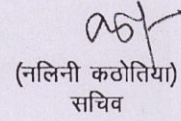 (नलिनी कठोतिया)
सचिव